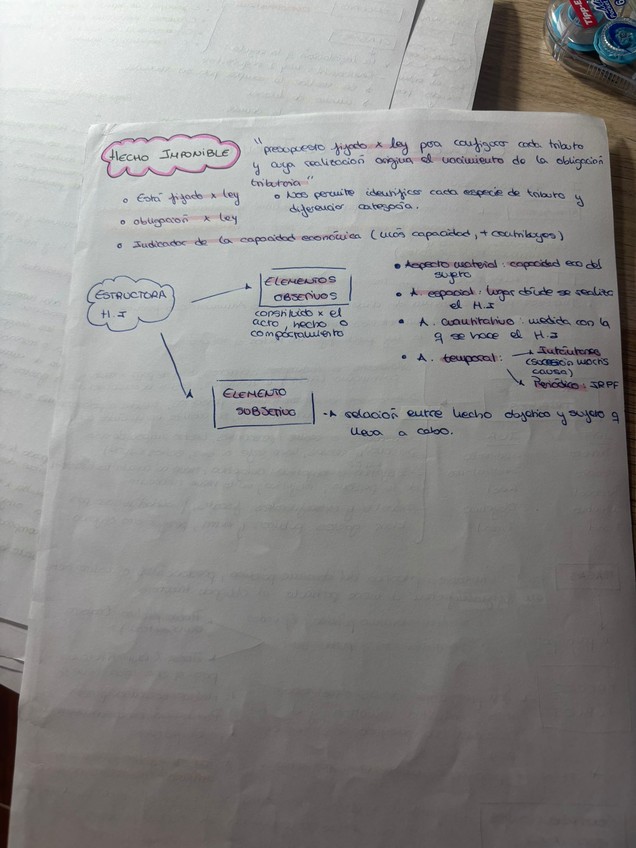 HECHO IMPONIBLE
"presupuesto fijado x ley para configurar cada tributo
y cuya realización origina el nacimiento de la obligación
tributaria"
• Está fijado x ley
• Nos permite identificar cada especie de tributo y
diferenciar categoría.
• obligación x ley
• Indicador de la capacidad económica (más capacidad, + contribuyes)
ESTRUCTURA
H.I
ELEMENTOS
OBJETIVOS
constituido x el
acto, hecho o
comportamiento
• Aspecto material: capacidad eco del
sujeto
• A. espacial: lugar donde se realiza
el H.I
• A. cuantitativo: medida con la
q se hace el H.I
• A. temporal:
Instantáneo
(sucesión mortis
causa)
Periódico: IRPF
ELEMENTO
SUBJETIVO
relación entre hecho objetivo y sujeto q
lleva a cabo.